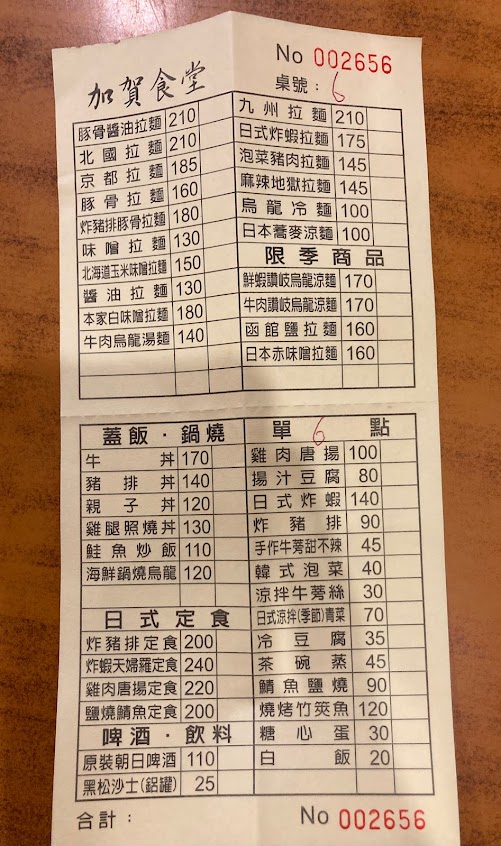 加賀食堂
No 002656
桌號：6
豚骨醬油拉麵 210
北國拉麵 210
京都拉麵 185
豚骨拉麵 160
炸豬排豚骨拉麵 180
味噌拉麵 130
北海道玉米味噌拉麵 150
醬油拉麵 130
本家白味噌拉麵 180
牛肉烏龍湯麵 140
九州拉麵 210
日式炸蝦拉麵 175
泡菜豬肉拉麵 145
麻辣地獄拉麵 145
烏龍冷麵 100
日本蕎麥涼麵 100
限季商品
鮮蝦讚岐烏龍涼麵 170
牛肉讚岐烏龍涼麵 170
函館鹽拉麵 160
日本赤味噌拉麵 160
蓋飯・鍋燒
牛丼 170
豬排丼 140
親子丼 120
雞腿照燒丼 130
鮭魚炒飯 110
海鮮鍋燒烏龍 120
日式定食
炸豬排定食 200
炸蝦天婦羅定食 240
雞肉唐揚定食 220
鹽燒鯖魚定食 200
啤酒・飲料
原裝朝日啤酒 110
黑松沙士(鋁罐) 25
單 6 點
雞肉唐揚 100
揚汁豆腐 80
日式炸蝦 140
炸豬排 90
手作牛蒡甜不辣 45
韓式泡菜 40
涼拌牛蒡絲 30
日式涼拌(季節)青菜 70
冷豆腐 35
茶碗蒸 45
鯖魚鹽燒 90
燒烤竹筴魚 120
糖心蛋 30
白飯 20
合計：
No 002656